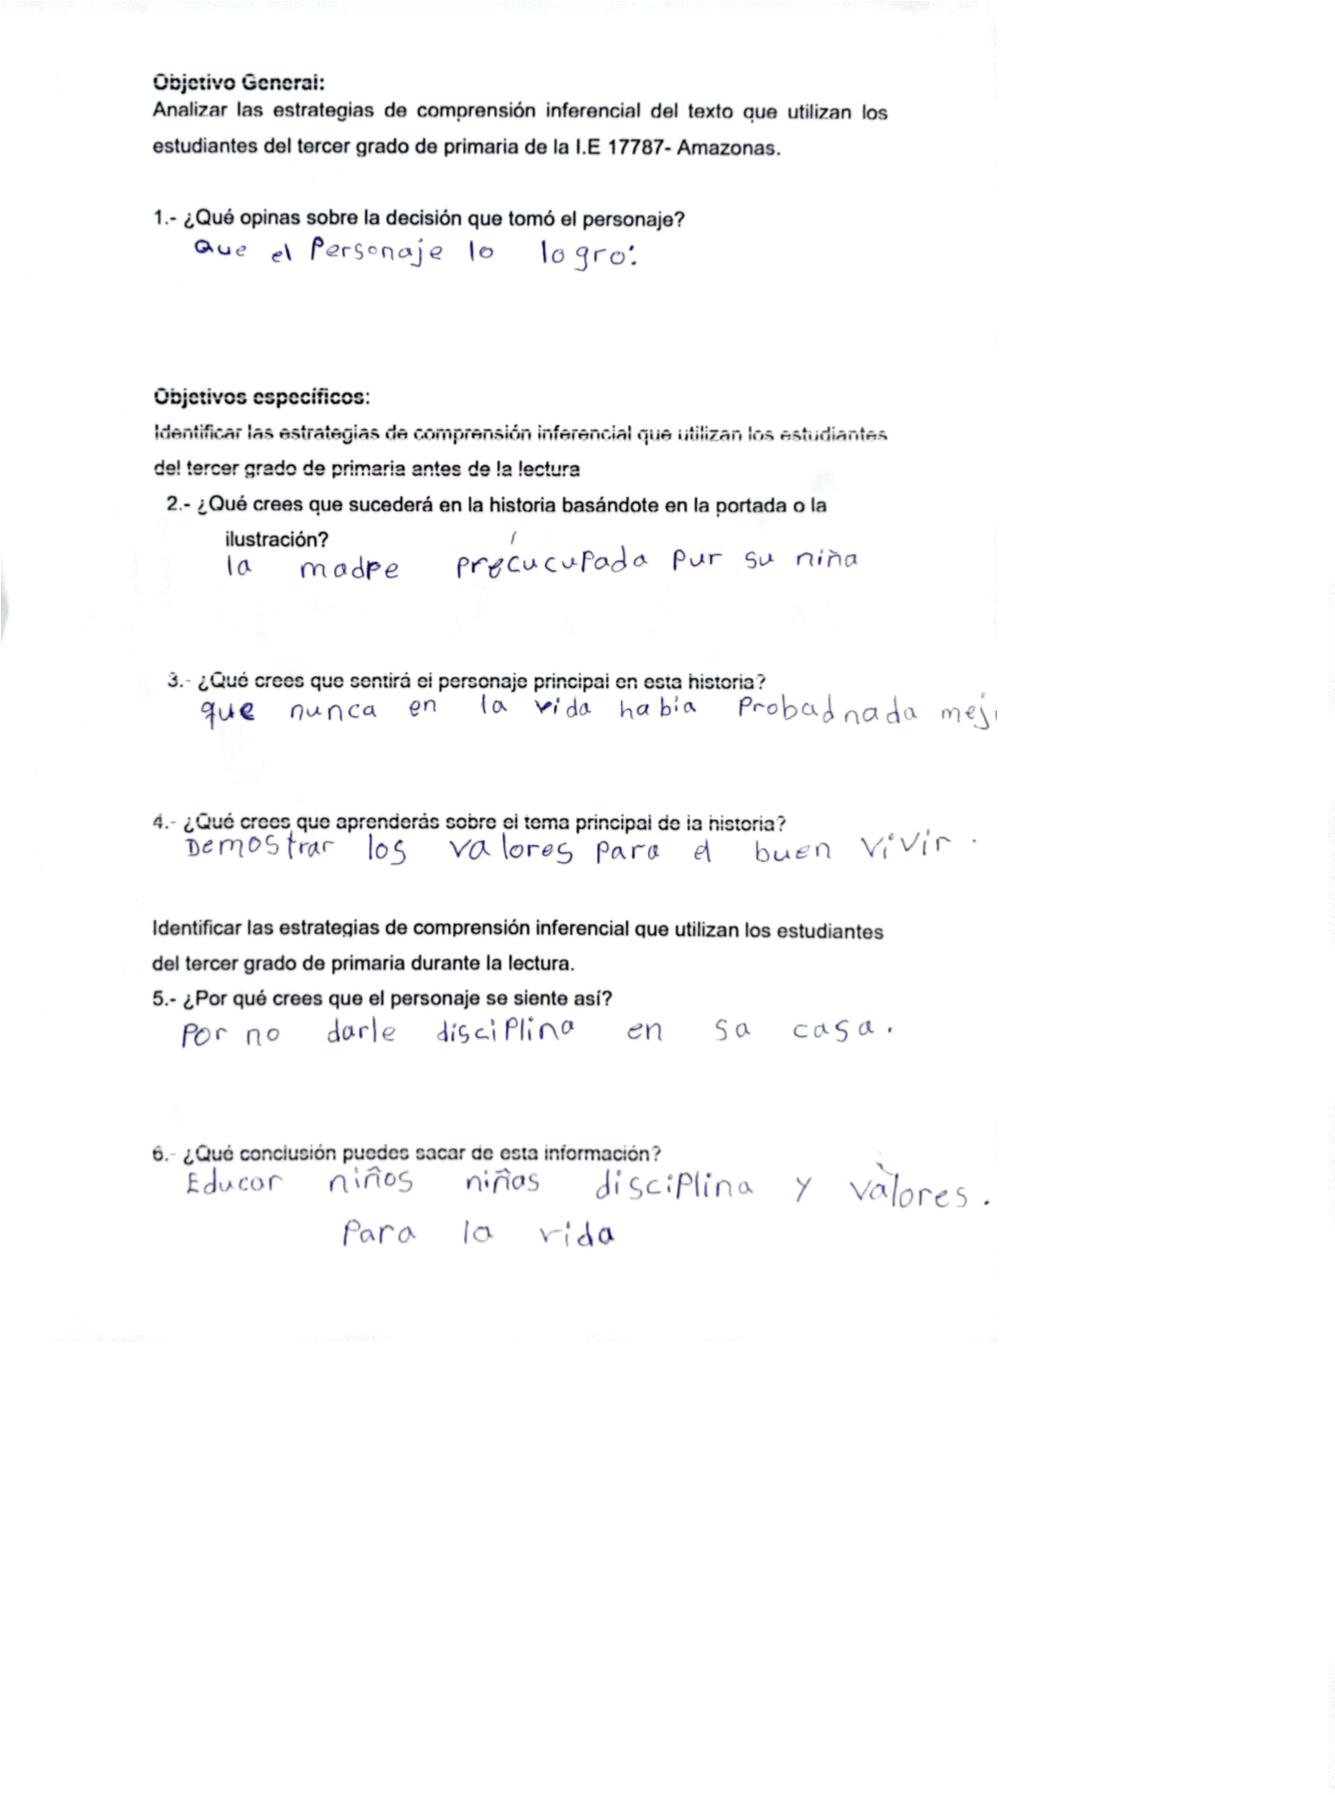 Objetivo General:
Analizar las estrategias de comprensión inferencial del texto que utilizan los
estudiantes del tercer grado de primaria de la I.E 17787- Amazonas.
1.- ¿Qué opinas sobre la decisión que tomó el personaje?
Que el Personaje lo logro:
Objetivos específicos:
Identificar las estrategias de comprensión inferencial que utilizan los estudiantes
del tercer grado de primaria antes de la lectura
2.- ¿Qué crees que sucederá en la historia basándote en la portada o la
ilustración?
la madre precucupada pur su niña
3.- ¿Qué crees que sentirá el personaje principal en esta historia?
que nunca en la vida había Probadnada mej
4.- ¿Qué crees que aprenderás sobre el tema principal de la historia?
Demostrar los valores para el buen vivir.
Identificar las estrategias de comprensión inferencial que utilizan los estudiantes
del tercer grado de primaria durante la lectura.
5.- ¿Por qué crees que el personaje se siente así?
Por no darle disciplina en sa casa.
6.- ¿Qué conclusión puedes sacar de esta información?
Educar niños niñas disciplina y valores.
Para la vida